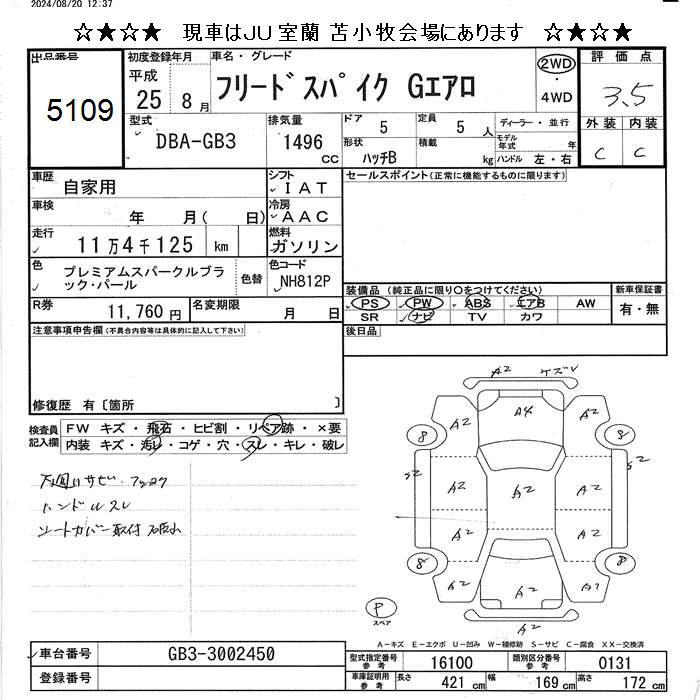 2024/08/20 12:37
☆★☆★ 現車はJU室蘭 苫小牧会場にあります ☆★☆★
出品番号
5109
初度登録年月
平成
25 8月
車名・グレード
フリードスパイク Gエアロ
2WD
4WD
評価点
3.5
外装 内装
C C
型式
DBA-GB3
排気量
1496
CC
ドア
5
定員
5 人
形状
ハッチB
積載
kg
ディーラー・並行
モデル年式 年
ハンドル 左・右
車歴
自家用
シフト
IAT
車検
年 月( 日)
冷房
AAC
走行
11万4千125 km
燃料
ガソリン
色
プレミアムスパークルブラック・パール
色替
色コード
NH812P
R券
11,760円
名変期限
月 日
セールスポイント(正常に機能するものに限ります)
装備品(純正品に限り○をつけてください)
PS PW ABS エアB AW
SR ナビ TV カワ
新車保証書
有・無
後日品
注意事項申告欄(不具合内容等は具体的に記入して下さい)
修復歴 有〔箇所 〕
検査員記入欄
FW キズ・飛石・ヒビ割・リペア跡・×要
内装 キズ・汚レ・コゲ・穴・スレ・キレ・破レ
下廻りサビ・
ハンドルスレ
シートカバー取付
A2 ケズV
A2 A4 A2
8 8
A2 A2 A2
A2 A2
8 8
A2 A2 A1
A2
P
スペア
A-キズ E-エクボ U-凹み W-補修跡 S-サビ C-腐食 XX-交換済
車台番号
GB3-3002450
登録番号
型式指定番号 参考
16100
類別区分番号 参考
0131
車庫証明用 参考
長さ 421 cm
幅 169 cm
高さ 172 cm